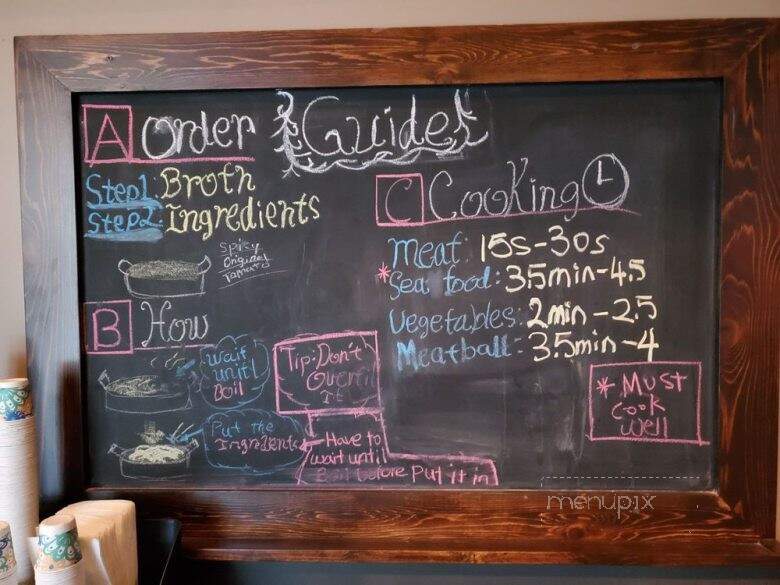 A Order Guides
Step1: Broth
Step2: Ingredients
Spicy
Original
Tomato
B How
wait
until
Boil
Tip: Don't
Overfill
It
Put the
Ingredients
Have to
wait until
Boil before Put it in
C Cooking
Meat: 15s-30s
*Sea food: 3.5min-4.5
Vegetables: 2min-2.5
Meatball: 3.5min-4
* Must
Cook
Well
menupix